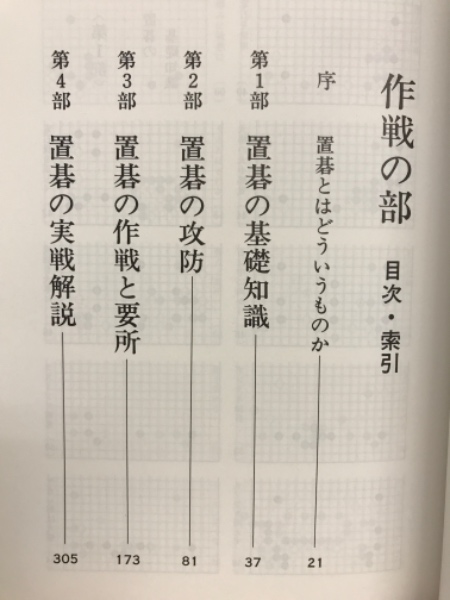 作戦の部 目次・索引
序 置碁とはどういうものか 21
第1部 置碁の基礎知識 37
第2部 置碁の攻防 81
第3部 置碁の作戦と要所 173
第4部 置碁の実戦解説 305